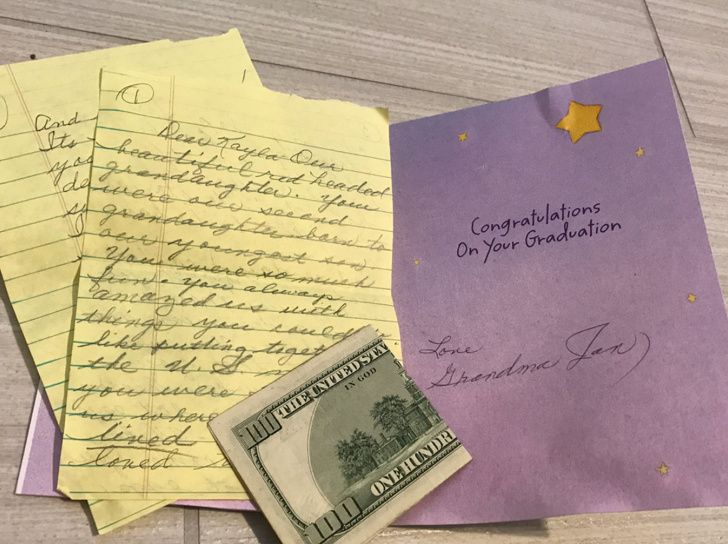 1
And
Its
you
1
Dear Kayla - Our
beautiful red headed
grandaughter. You
were our second
grandaughter born to
our youngest son
You were so much
fun. you always
amazed us with
things you could
like putting
the U. S
you were
us where
lived
loved
Congratulations
On Your Graduation
Love
Grandma Jan
100
THE UNITED STA
IN GOD
100
ONE HUNDR